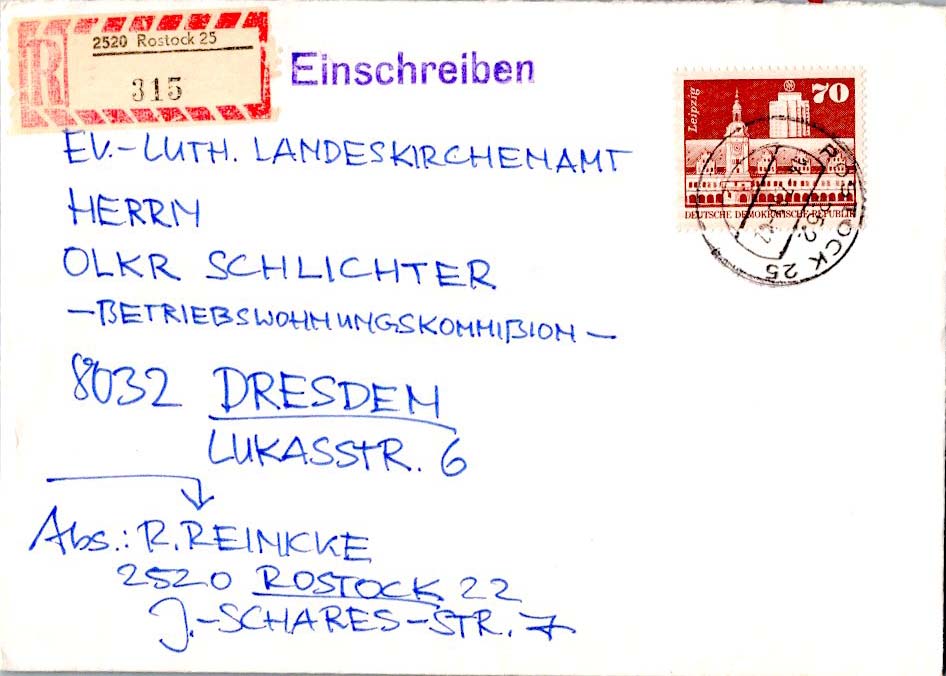 2520 Rostock 25
R
315
Einschreiben
Leipzig
70
DEUTSCHE DEMOKRATISCHE REPUBLIK
ROSTOCK 25
252
EV.-LUTH. LANDESKIRCHENAMT
HERRN
OLKR SCHLICHTER
—BETRIEBSWOHNUNGSKOMMIßION—
8032 DRESDEN
LUKASSTR. 6
Abs.: R. REINICKE
2520 ROSTOCK 22
J.-SCHARES-STR. 7